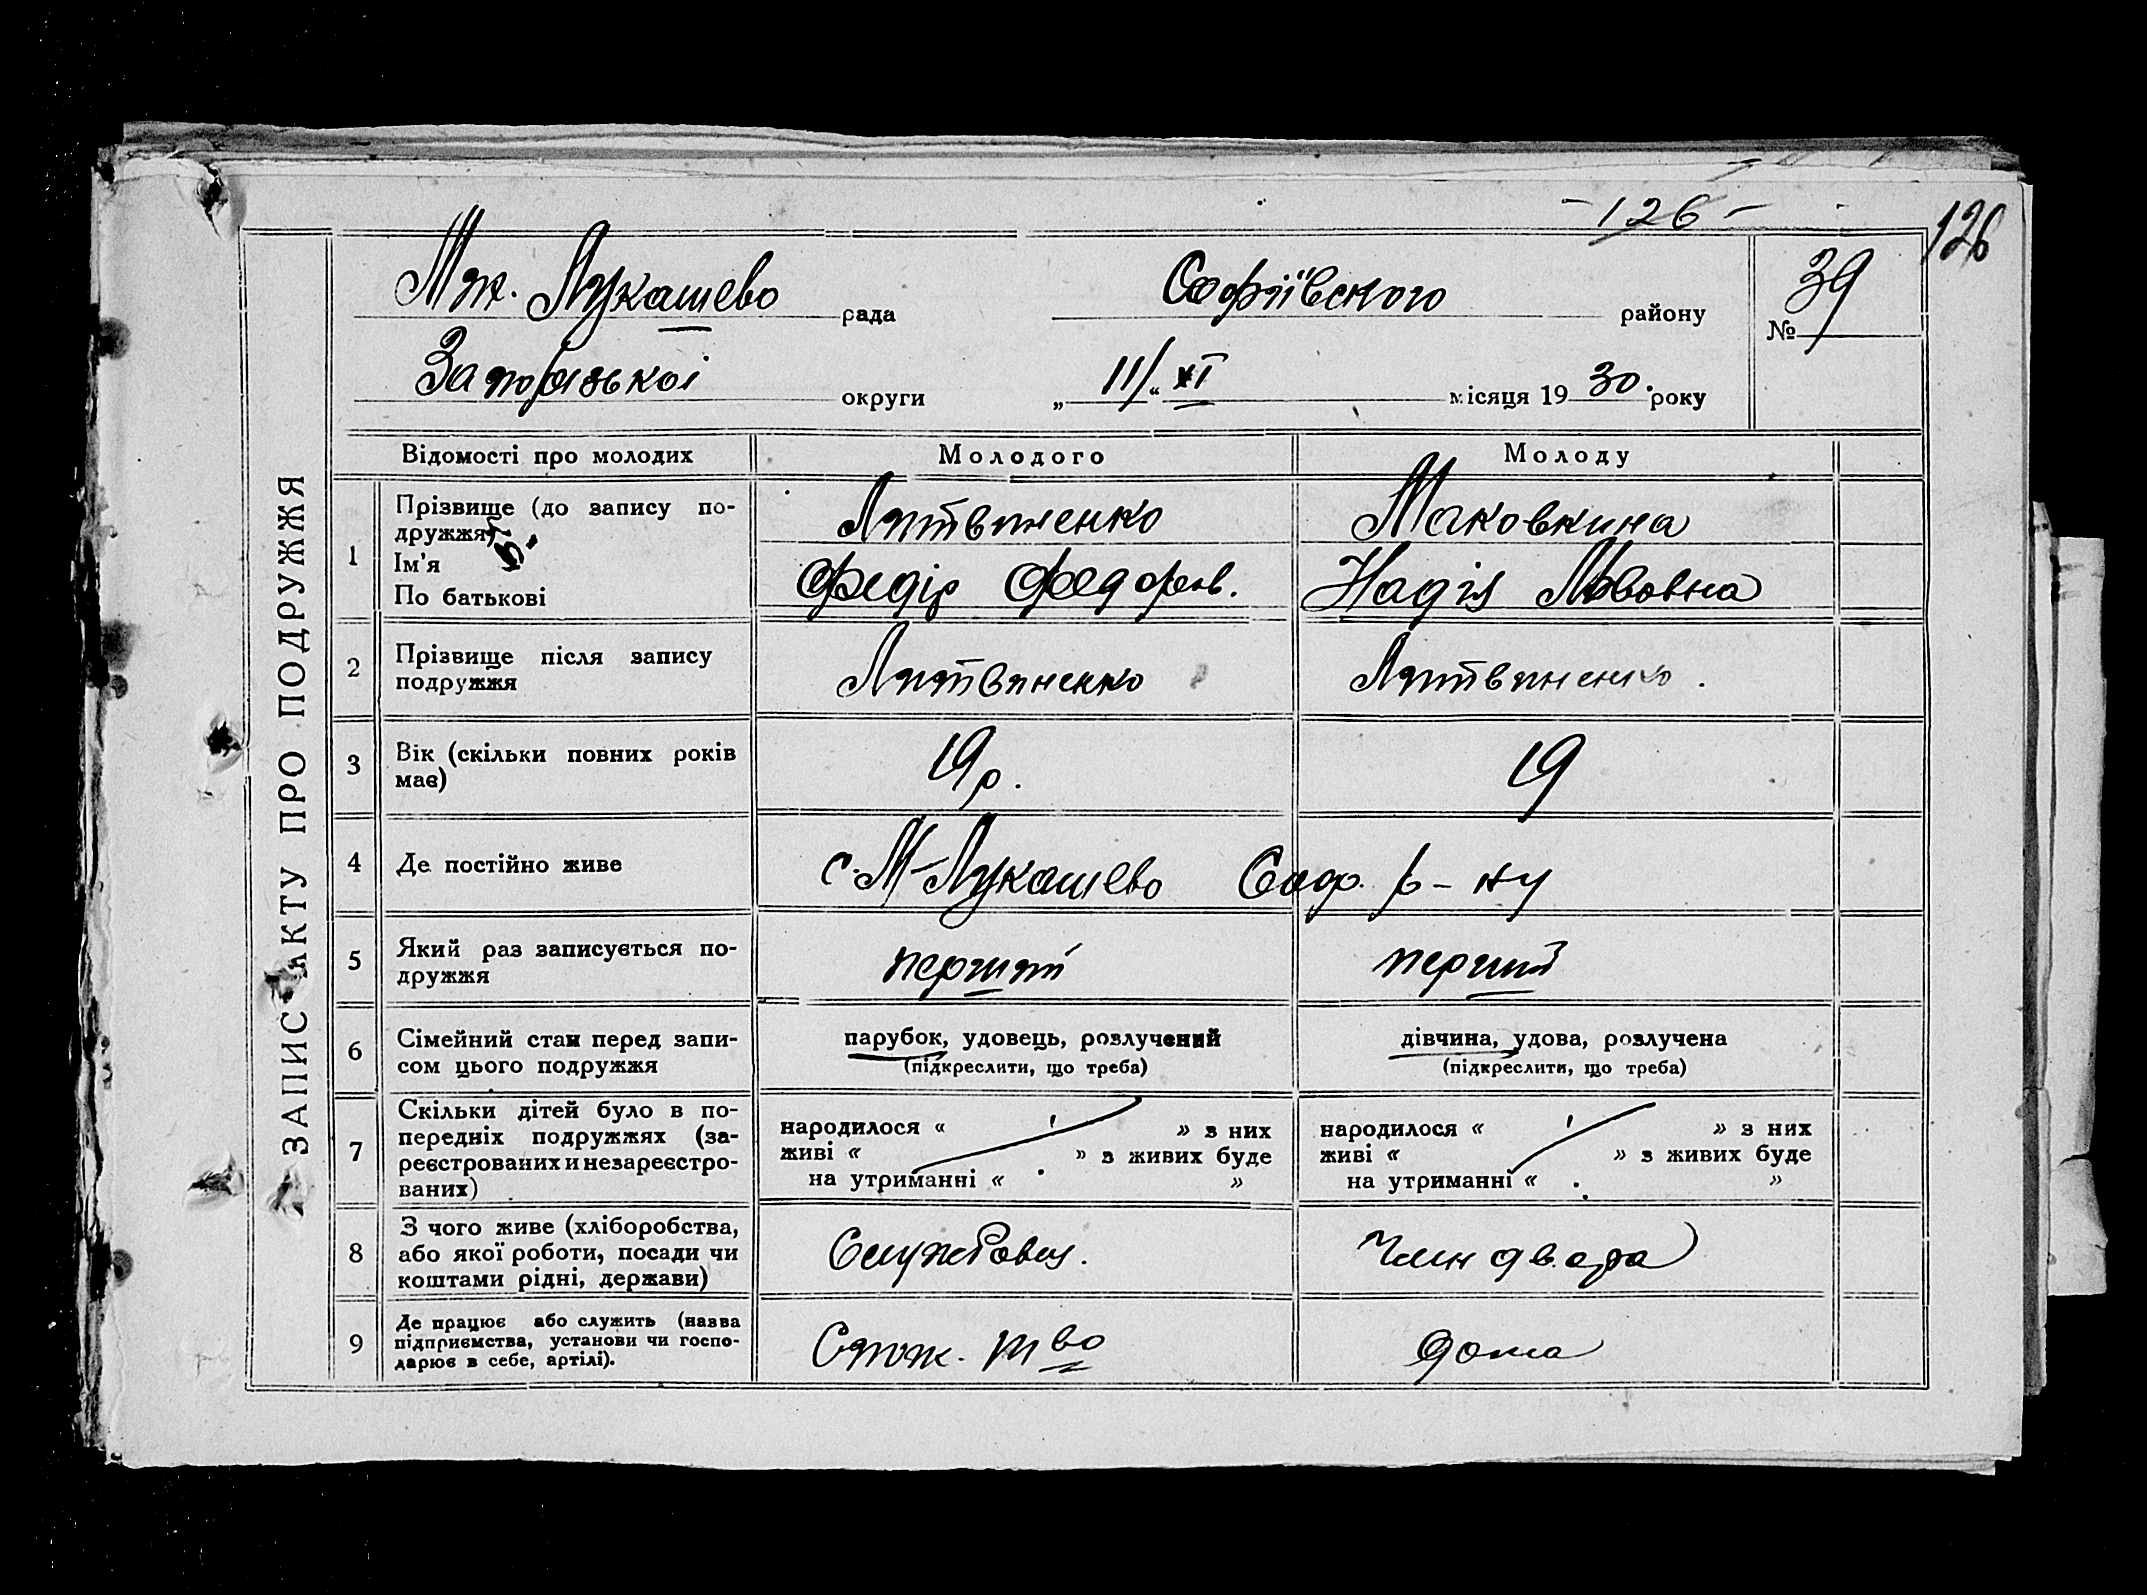 -126-
126
Мих. Лукашево рада Софіївського району № 39
Запорізької округи „ 11/ “ XI місяця 19 30. року
ЗАПИС АКТУ ПРО ПОДРУЖЖЯ
Відомості про молодих Молодого Молоду
1 Прізвище (до запису по-
дружжя) Литвиненко Маковкина
Ім'я
По батькові Федір Федоров. Надія Львовна
2 Прізвище після запису
подружжя Литвиненко Литвиненко.
3 Вік (скільки повних років
має) 19 р. 19
4 Де постійно живе с. М-Лукашево Соф. р-ну
5 Який раз записується по-
дружжя перший перший
6 Сімейний стан перед запи-
сом цього подружжя
парубок, удовець, розлучений
(підкреслити, що треба)
дівчина, удова, розлучена
(підкреслити, що треба)
7 Скільки дітей було в по-
передніх подружжях (за-
реєстрованих и незареєстро-
ваних)
народилося « » з них
живі « » з живих буде
на утриманні « »
народилося « » з них
живі « » з живих буде
на утриманні « »
8 З чого живе (хліборобства,
або якої роботи, посади чи
коштами рідні, держави)
Службовец. Член двора
9 Де працює або служить (назва
підприємства, установи чи госпо-
дарює в себе, артілі).
Спож. т во дома